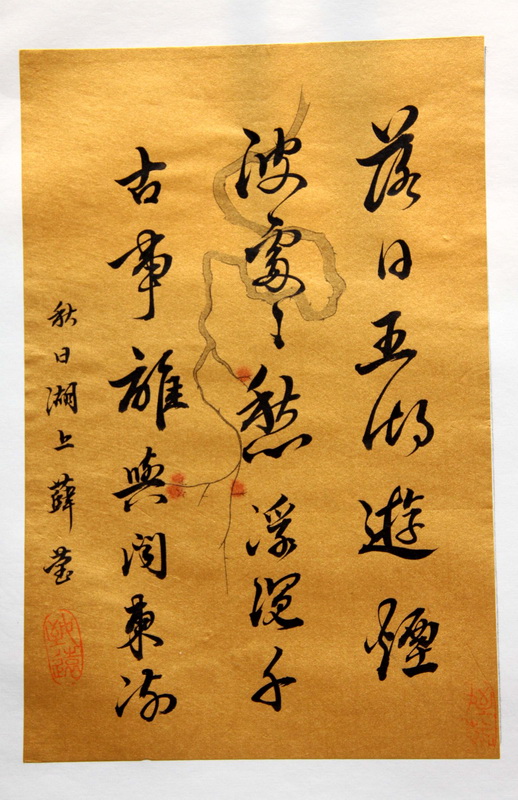 落日五湖遊煙
波處〻愁浮沉千
古事誰與問東流
秋日湖上薛瑩